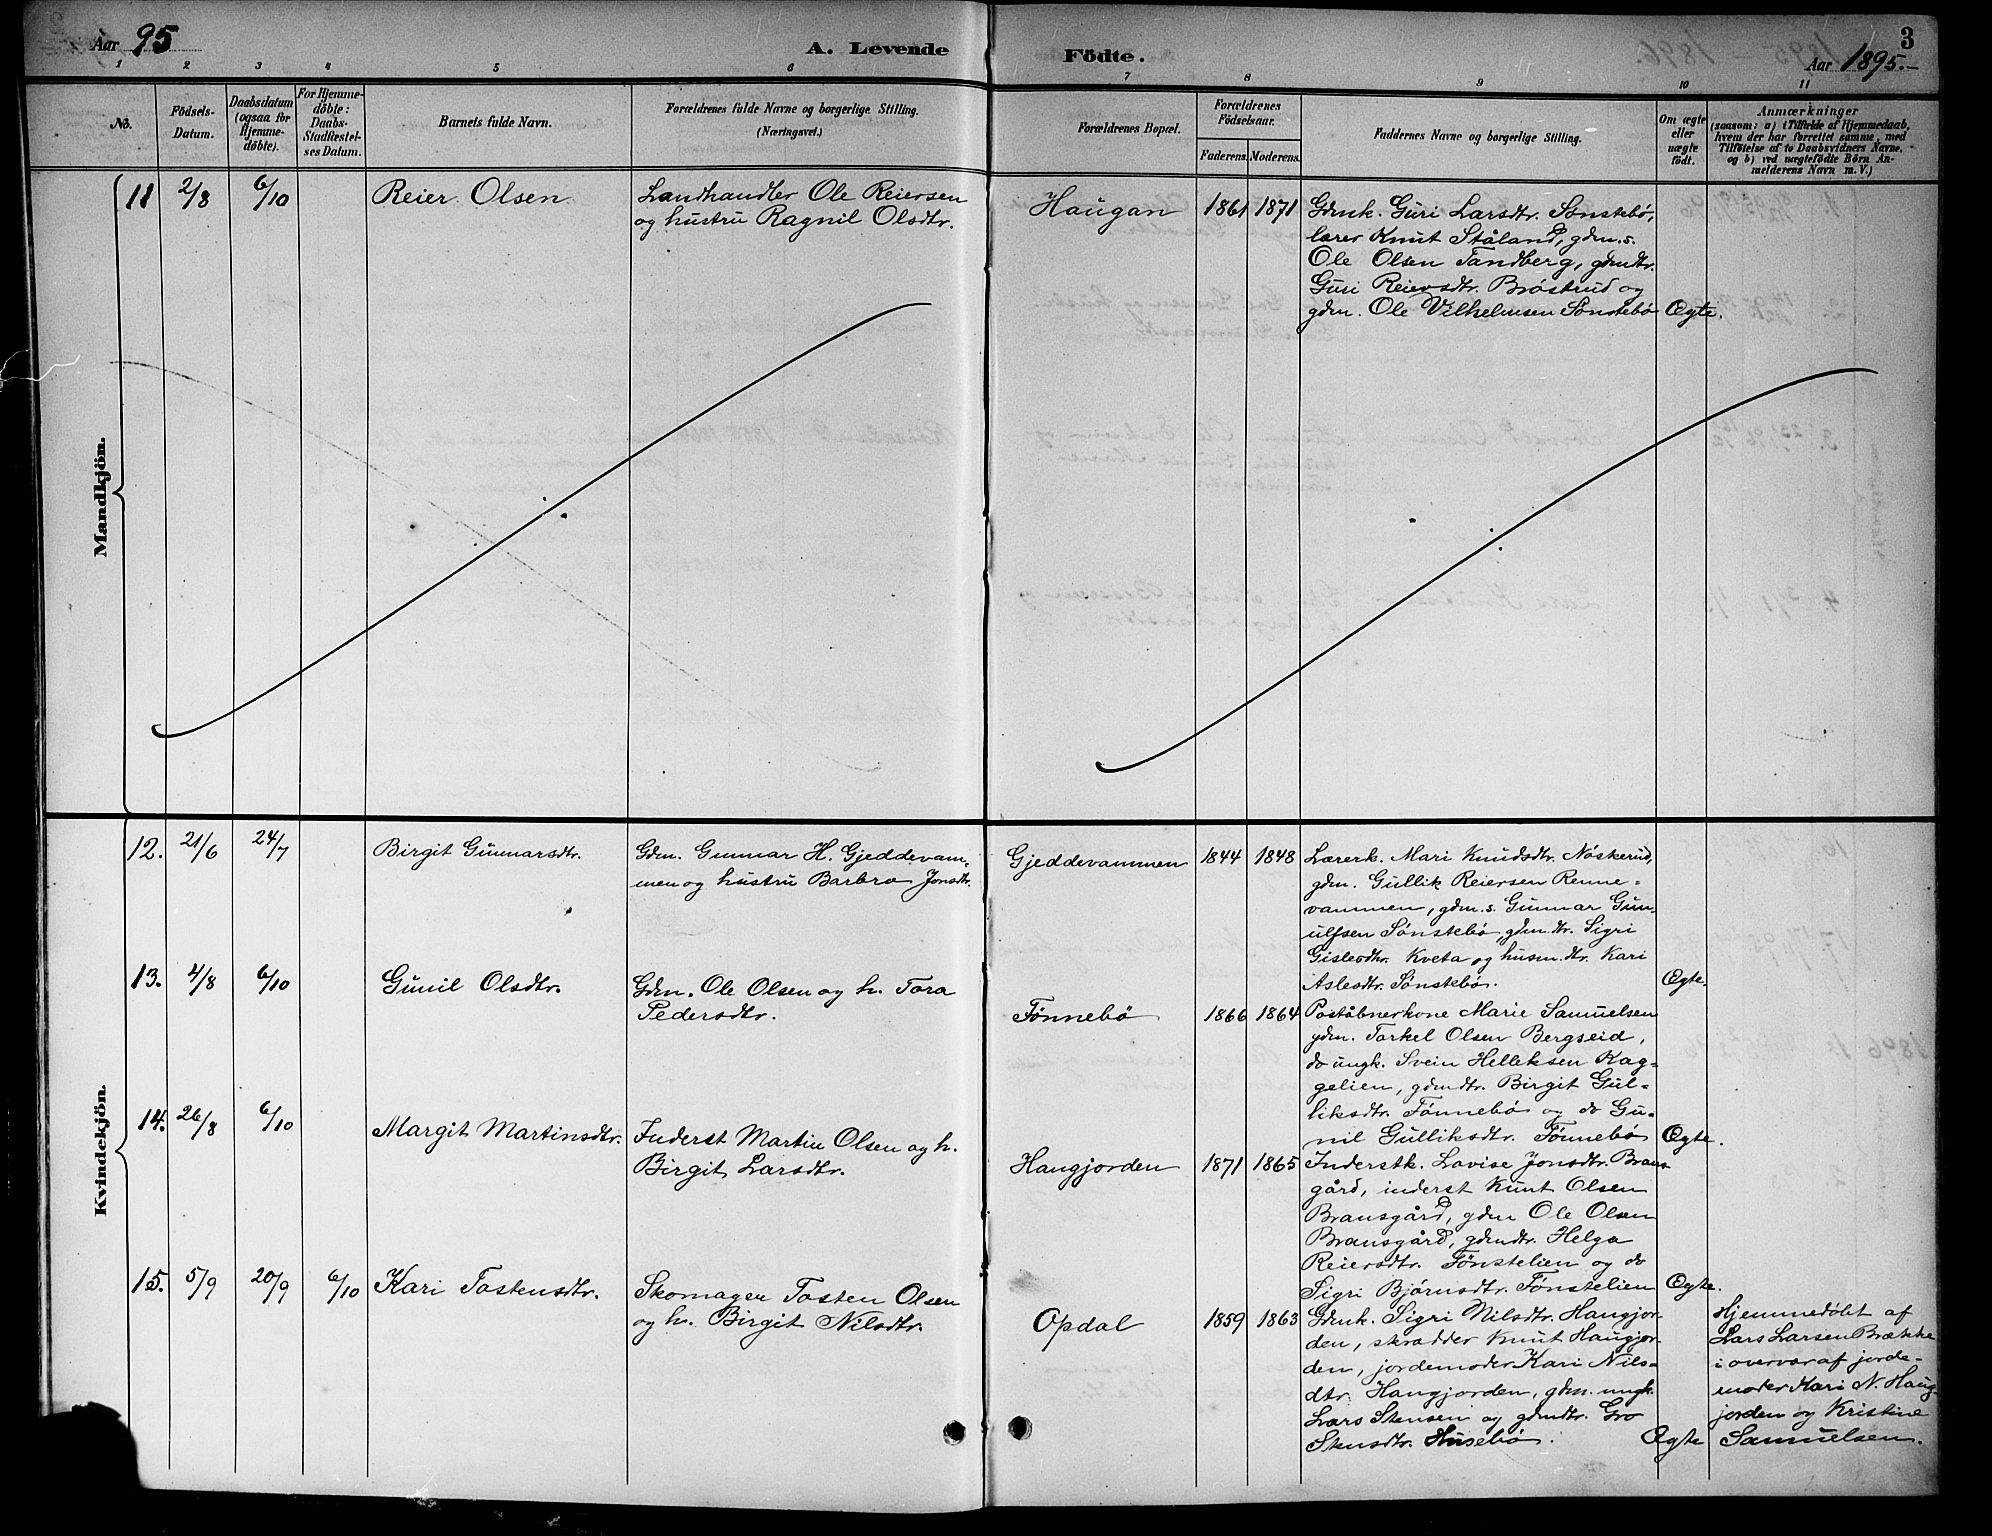 Aar 95
A. Levende
Födte.
3
Aar 1895.
1 2 3 4 5 6 7 8 9 10 11
No.
Födsels-
Datum.
Daabsdatum
(ogsaa for
Hjemme-
döbte).
For Hjemme-
döbte:
Daabs-
Stadfæstel-
ses Datum.
Barnets fulde Navn.
Forældrenes fulde Navne og borgerlige Stilling.
(Næringsvei.)
Forældrenes Bopæl.
Forældrenes
Födselsaar.
Faderens. Moderens.
Faddernes Navne og borgerlige Stilling.
Om ægte
eller
uægte
födt.
Anmærkninger
(saasom: a) i Tilfælde af Hjemmedaab,
hvem der har forrettet samme, med
Tilföielse af to Daabsvidners Navne,
og b) ved uægtefödte Börn An-
melderens Navn m. V.)
Mandkjön.
11 2/8 6/10 Reier Olsen
Landhandler Ole Reiersen
og hustru Ragnil Olsdtr.
Haugan 1861 1871
Gdmk. Guri Larsdtr. Sønstebø,
lærer Knut Ståland, gdm.s.
Ole Olsen Tandberg, gdmdtr.
Guri Reiersdtr. Brøstrud og
gdm. Ole Vilhelmsen Sønstebø Ægte.
Kvindekjön.
12. 21/6 24/7 Birgit Gunnarsdtr.
Gdm. Gunnar H. Gjeddevam-
men og hustru Barbra Jonsdtr.
Gjeddevammen 1844 1848
Lærerk. Mari Knudsdtr. Nöskerud,
gdm. Gullik Reiersen Renne-
vammen, gdm.s. Gunnar Gun-
ulfsen Sønstebø, gdm.dtr. Sigri
Gislesdtr. Kveta og husm.dtr. Kari
Aslesdtr. Sønstebø. Ægte.
13. 4/8 6/10 Gunil Olsdtr.
Gdm. Ole Olsen og h. Tora
Pedersdtr.
Tønnebø 1866 1864
Poståbnerkone Marie Samuelsen
gdm. Torkel Olsen Bergseid,
do ungk. Svein Helleksen Rag-
gelien, gdmdtr. Birgit Gul-
liksdtr. Tønnebø og do Gu-
nil Gulliksdtr. Tønnebø Ægte.
14. 26/8 6/10 Margit Martinsdtr.
Inderst Martin Olsen og h.
Birgit Larsdtr.
Haugjorden 1871 1865
Inderstk. Lovise Jonsdtr. Brans-
gård, inderst Knut Olsen
Bransgård, gdm Ole Olsen
Bransgård, gdmdtr. Helga
Reiersdtr. Tønstelien og do
Sigri Bjørnsdtr. Tønstelien Ægte.
15. 5/9 20/9 6/10 Kari Tostensdtr.
Skomager Tosten Olsen
og h. Birgit Nilsdtr.
Opdal 1859 1863
Gdmk. Sigri Nilsdtr. Haugjor-
den, skrædder Knut Haugjor-
den, jordemoder Kari Nils-
dtr. Haugjorden, gdm. ungk.
Lars Stensen og gdmdtr. Gro
Stensdtr. Husebø. Ægte
Hjemmedøbt af
Lars Larsen Brække
i overvær af jorde-
moder Kari N. Haug-
jorden og Kristine
Samuelsen.